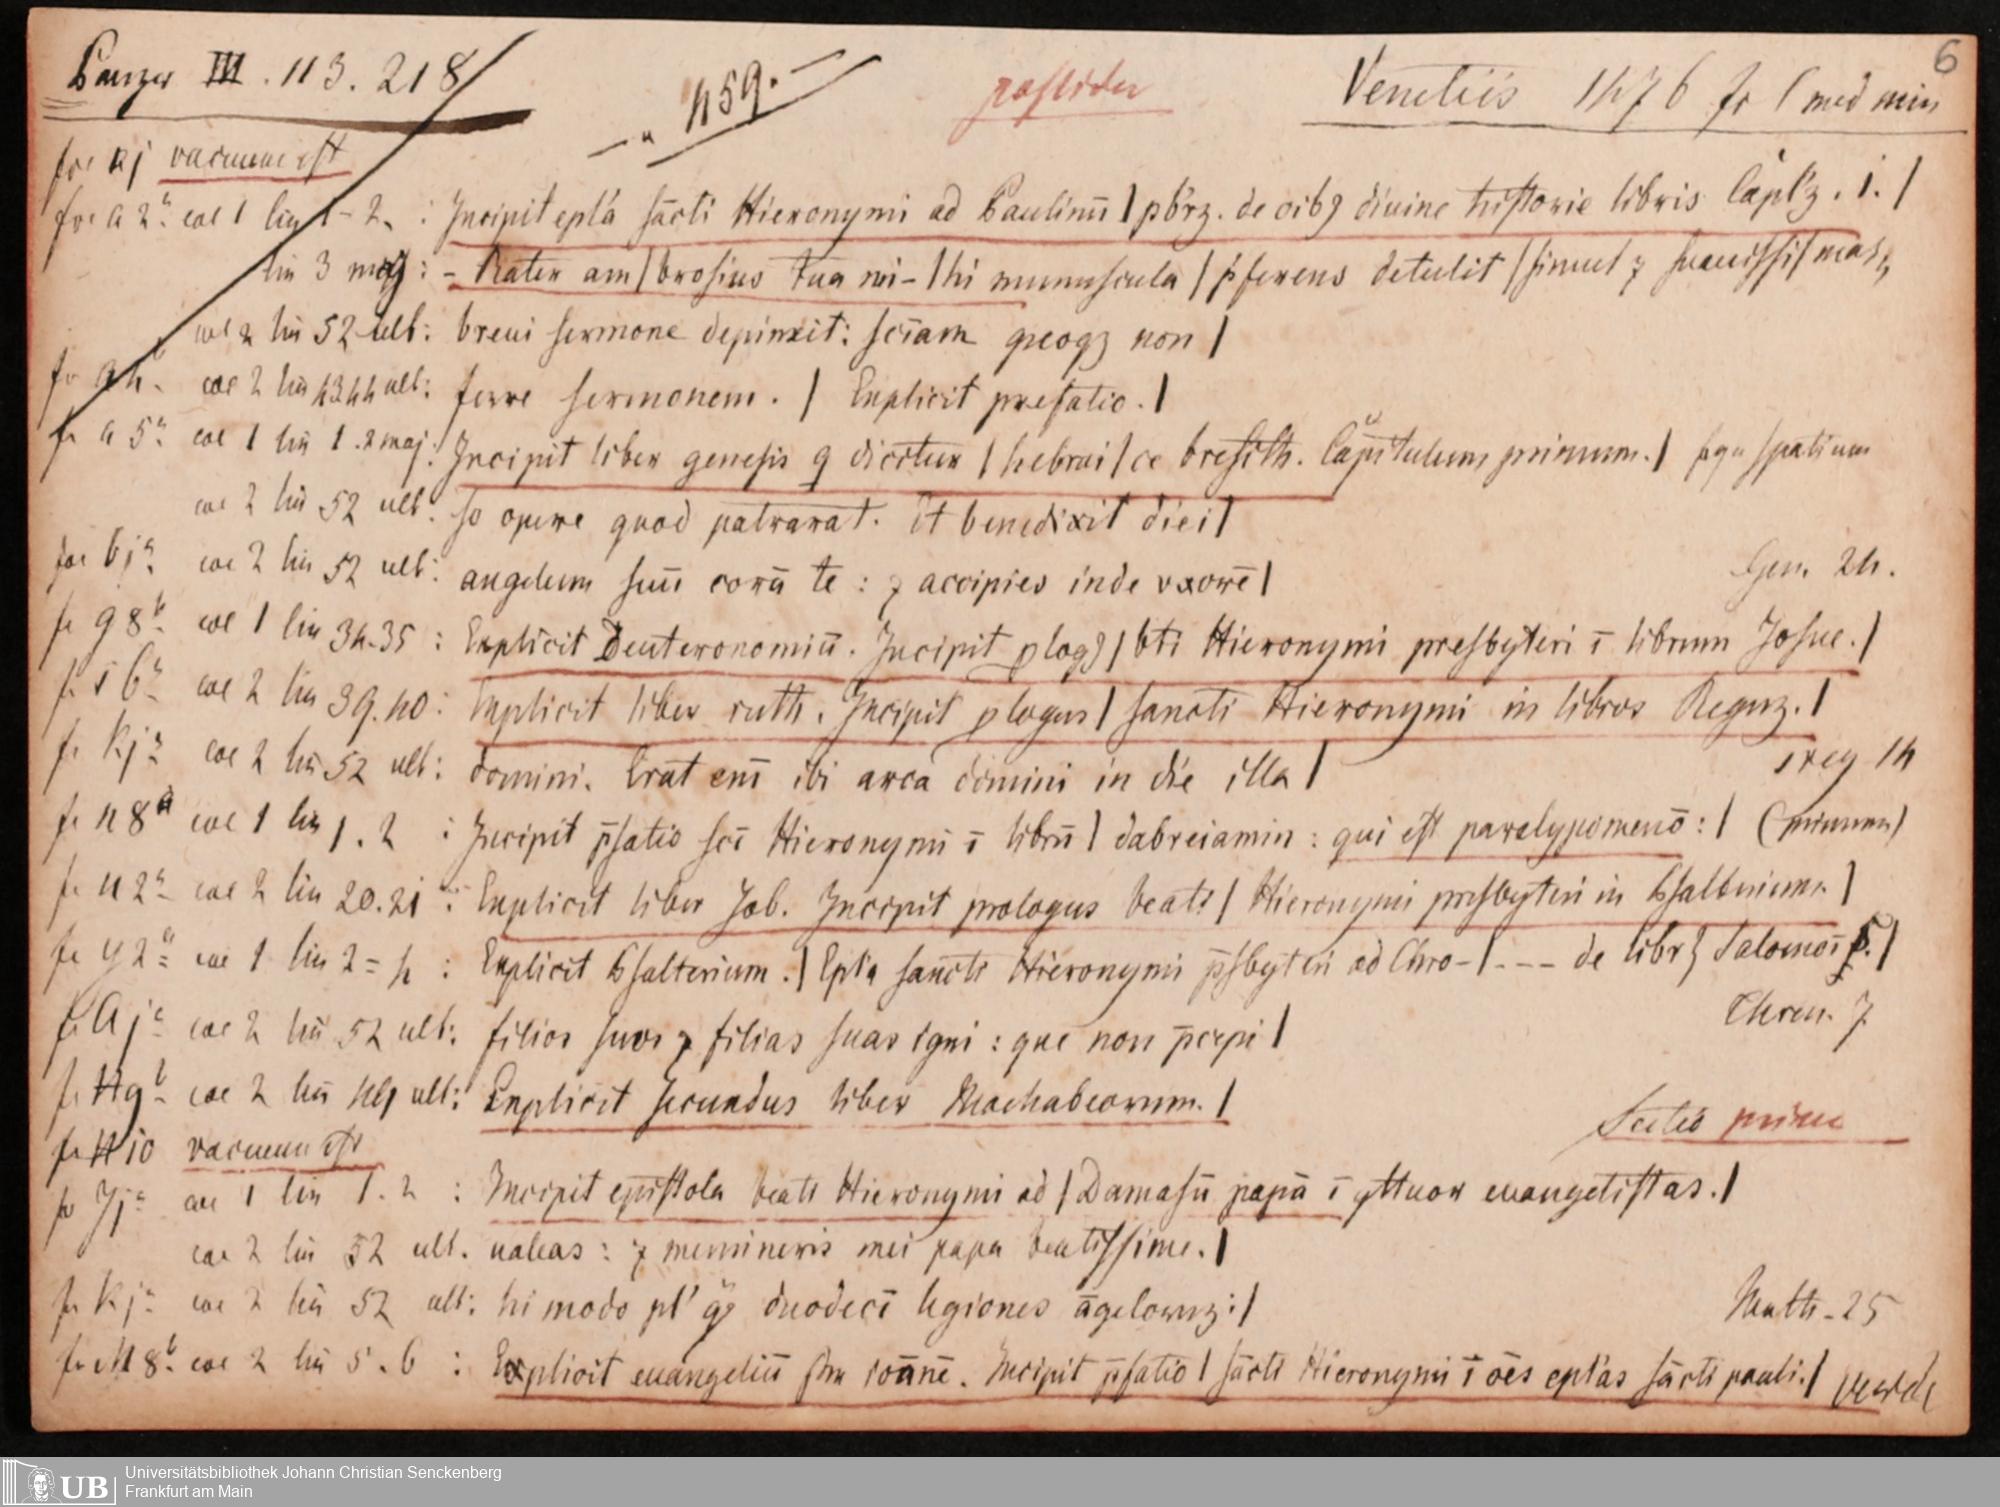 Panzer III. 113. 218
459.
possidet
Venetiis 1476 fo l med min
6
fol aj vacuum est
fol a 2ª col 1 lin 1-2. : Incipit epl'a sācti Hieronymi ad Paulinū | pb'rz. de oib9 diuine historie libris Capl'z. i. |
lin 3 maj : - Rater am | brosius tua mi- | hi munuscula | p'ferens detulit | simul z suauissi | mas
col 2 lin 52 ult: breui sermone depinxit: sciam
non |
fo a 4b col 2 lin 43.44 ult: ferre sermonem. | Explicit prefatio. |
fo a 5ª col 1 lin 1.2 maj: Incipit liber genesis q dicitur | hebrai | ce bresith. Capitulum primum. | spatium
col 2 lin 52 ult: so opere quod patrarat. Et benedixit diei |
fol bjª col 2 lin 52 ult: angelum suū corā te : z accipies inde vxorē | Gen. 24.
fo g 8b col 1 lin 34-35 : Explicit Deuteronomiū. Incipit plog9 | bti Hieronymi presbyteri ī librum Josue. |
fo i 6ª col 2 lin 39.40 : Explicit liber ruth. Incipit plogus | sancti Hieronymi in libros Reguz. |
fo kjª col 2 lin 52 ult: domini. Erat eni ibi arca domini in die illa | 1 reg 14
fo n 8ª col 1 lin 1.2 : Incipit p̄fatio sci Hieronymi ī librū | dabreiamin : qui est paralypomenō : |
fo u 2ª col 2 lin 20.21 : Explicit liber Job. Incipit prologus beati | Hieronymi presbyteri in Psalterium. |
fo y 2ª col 1 lin 2-4 : Explicit Psalterium. | Epl'a sancti Hieronymi p̄sbyteri ad Chro- | --- de libr Salomoīs. |
fo A jª col 2 lin 52 ult: filios suos z filias suas igni : que non p̄cepi |
7
fo H 9b col 2 lin ult: Explicit secundus liber Machabeorum. |
fo H 10 vacuum est
fo Jjª col 1 lin 1.2 : Incipit epistola beati Hieronymi ad | Damasū papā ī qttuor euangelistas. |
col 2 lin 52 ult. ualeas : z memineris mei papa beatissime. |
fo Kjª col 2 lin 52 ult: hi modo pl' q duodecī legiones āgeloruz : | Math. 25
fo M 8b col 2 lin 5.6 : Explicit euangeliū ioānē. Incipit p̄fatio | sācti Hieronymi ī oēs epl'as sācti pauli. |
Universitätsbibliothek Johann Christian Senckenberg
UB Frankfurt am Main